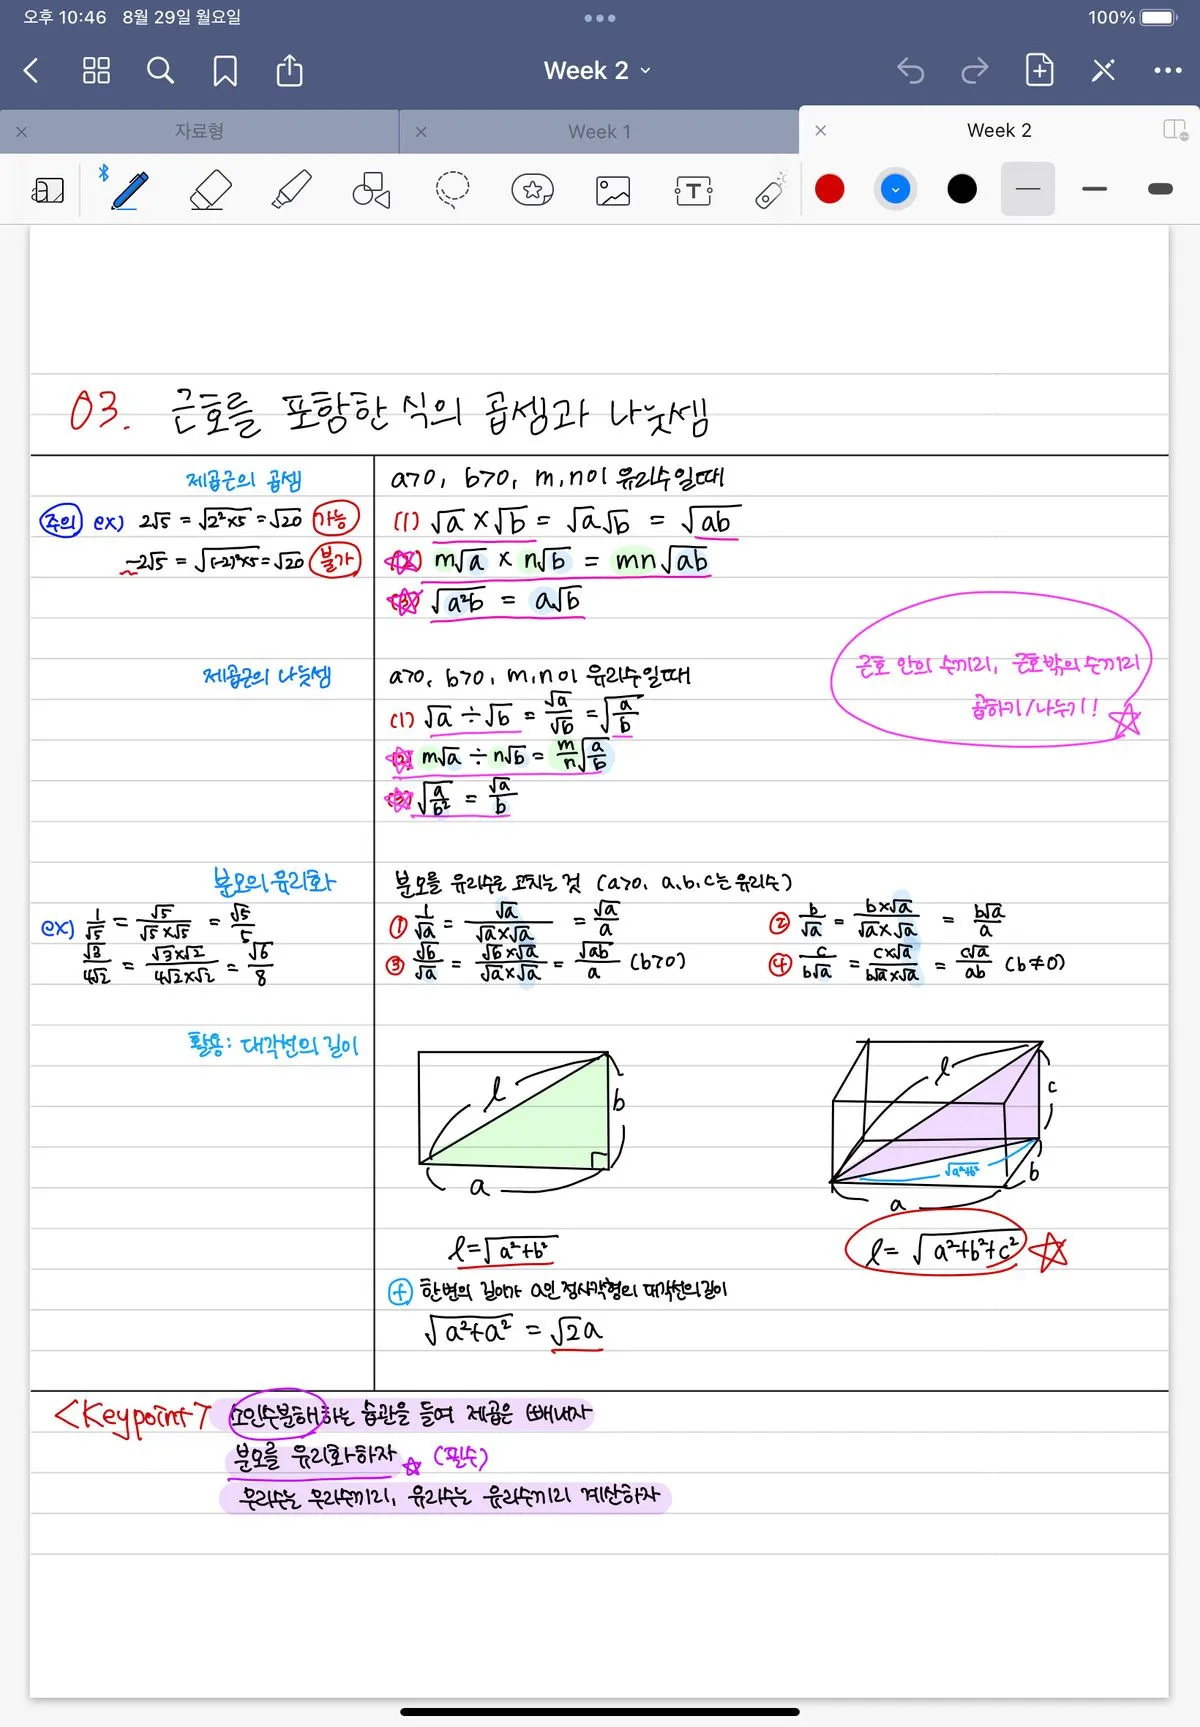 오후 10:46 8월 29일 월요일
100%
Week 2
자료형
Week 1
Week 2
T
03. 근호를 포함한 식의 곱셈과 나눗셈
제곱근의 곱셈
주의 ex) 2√5 = √(2²×5) = √20 가능
-2√5 = √((-2)²×5) = √20 불가
a>0, b>0, m,n이 유리수일때
(1) √a × √b = √a√b = √ab
(2) m√a × n√b = mn√ab
(3) √(a²b) = a√b
근호 안의 수끼리, 근호밖의 수끼리
곱하기/나누기!
제곱근의 나눗셈
a>0, b>0, m,n이 유리수일때
(1) √a ÷ √b = √a/√b = √(a/b)
(2) m√a ÷ n√b = m/n√(a/b)
(3) √(a/b²) = √a/b
분모의 유리화
ex) 1/√5 = √5/(√5×√5) = √5/5
√3/4√2 = (√3×√2)/(4√2×√2) = √6/8
분모를 유리수로 고치는 것 (a>0, a,b,c는 유리수)
① 1/√a = √a/(√a×√a) = √a/a
② b/√a = (b×√a)/(√a×√a) = b√a/a
③ √b/√a = (√b×√a)/(√a×√a) = √ab/a (b>0)
④ c/b√a = (c×√a)/(b√a×√a) = c√a/ab (b≠0)
활용: 대각선의 길이
l
b
a
l
c
√(a²+b²)
b
a
l=√(a²+b²)
l= √(a²+b²+c²)
+ 한변의 길이가 a인 정사각형의 대각선의길이
√(a²+a²) = √2a
<Keypoint> 소인수분해하는 습관을 들여 제곱은 빼내자
분모를 유리화하자 (필수)
무리수는 무리수끼리, 유리수는 유리수끼리 계산하자